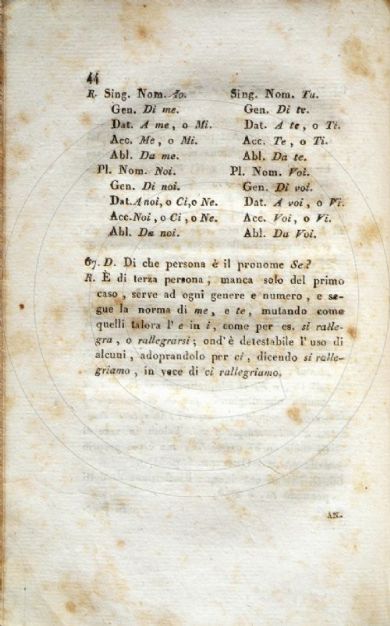 44
R. Sing. Nom. Io. Sing. Nom. Tu.
Gen. Di me. Gen. Di te.
Dat. A me, o Mi. Dat. A te, o Ti.
Acc. Me, o Mi. Acc. Te, o Ti.
Abl. Da me. Abl. Da te.
Pl. Nom. Noi. Pl. Nom. Voi.
Gen. Di noi. Gen. Di voi.
Dat. A noi, o Ci, o Ne. Dat. A voi, o Vi.
Acc. Noi, o Ci, o Ne. Acc. Voi, o Vi.
Abl. Da noi. Abl. Da Voi.
67. D. Di che persona è il pronome Se?
R. È di terza persona, manca solo del primo
caso, serve ad ogni genere e numero, e se-
gue la norma di me, e te, mutando come
quelli talora l' e in i, come per es. si ralle-
gra, o rallegrarsi; ond'è detestabile l'uso di
alcuni, adoprandolo per ci, dicendo si ralle-
griamo, in vece di ci rallegriamo.
AN-